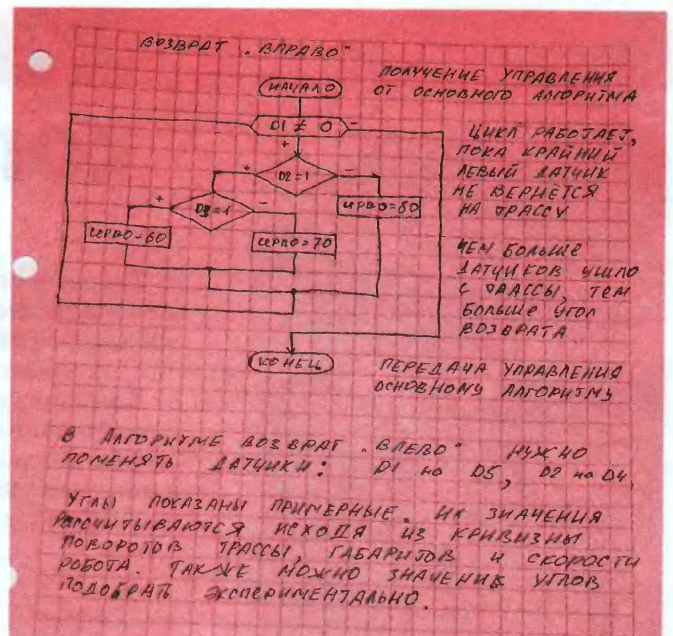 ВОЗВРАТ „ВПРАВО"
ПОЛУЧЕНИЕ УПРАВЛЕНИЯ
ОТ ОСНОВНОГО АЛГОРИТМА
НАЧАЛО
D1 ≠ 0
+
-
ЦИКЛ РАБОТАЕТ,
ПОКА КРАЙНИЙ
ЛЕВЫЙ ДАТЧИК
НЕ ВЕРНЁТСЯ
НА ТРАССУ
+
D2=1
-
+
D3=1
-
СЕРВО=80
СЕРВО=60
СЕРВО=70
ЧЕМ БОЛЬШЕ
ДАТЧИКОВ УШЛО
С ТРАССЫ, ТЕМ
БОЛЬШЕ УГОЛ
ВОЗВРАТА
КОНЕЦ
ПЕРЕДАЧА УПРАВЛЕНИЯ
ОСНОВНОМУ АЛГОРИТМУ
В АЛГОРИТМЕ ВОЗВРАТ „ВЛЕВО" НУЖНО
ПОМЕНЯТЬ ДАТЧИКИ: D1 на D5, D2 на D4.
УГЛЫ ПОКАЗАНЫ ПРИМЕРНЫЕ. ИХ ЗНАЧЕНИЯ
РАССЧИТЫВАЮТСЯ ИСХОДЯ ИЗ КРИВИЗНЫ
ПОВОРОТОВ ТРАССЫ, ГАБАРИТОВ И СКОРОСТИ
РОБОТА. ТАКЖЕ МОЖНО ЗНАЧЕНИЕ УГЛОВ
ПОДОБРАТЬ ЭКСПЕРИМЕНТАЛЬНО.